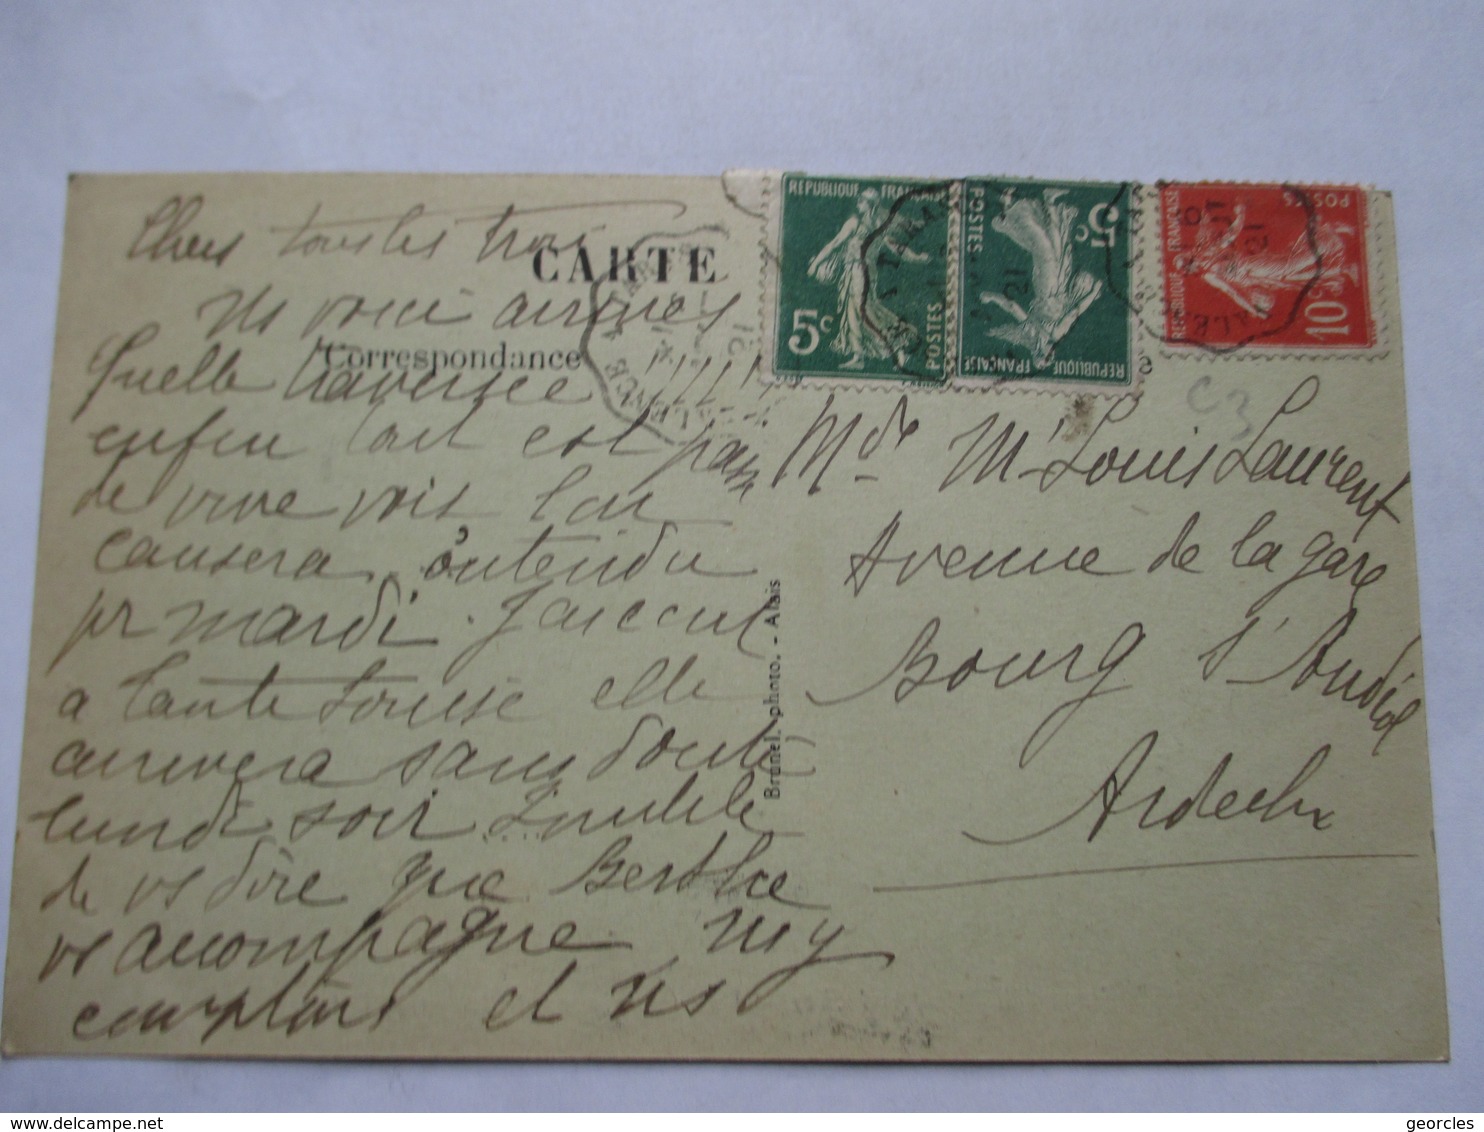 Chers tous les trois
CARTE
Correspondance
ns voici arrivés
Quelle traversée
enfin tout est passé
de vive voix l'on
causera entendu
pr mardi. J'ai écrit
a Tante Louise elle
arrivera sans doute
lundi soir Inutile
de vs dire que Berthe
vs accompagne ns y
comptons et ns
Brunel. photo. - Alais
REPUBLIQUE FRANÇAISE
5c
POSTES
REPUBLIQUE FRANÇAISE
5c
POSTES
REPUBLIQUE FRANÇAISE
10c
POSTES
21
21
21
C3
Mde Mr Louis Laurent
Avenue de la gare
Bourg St Andéol
Ardèche
georcles